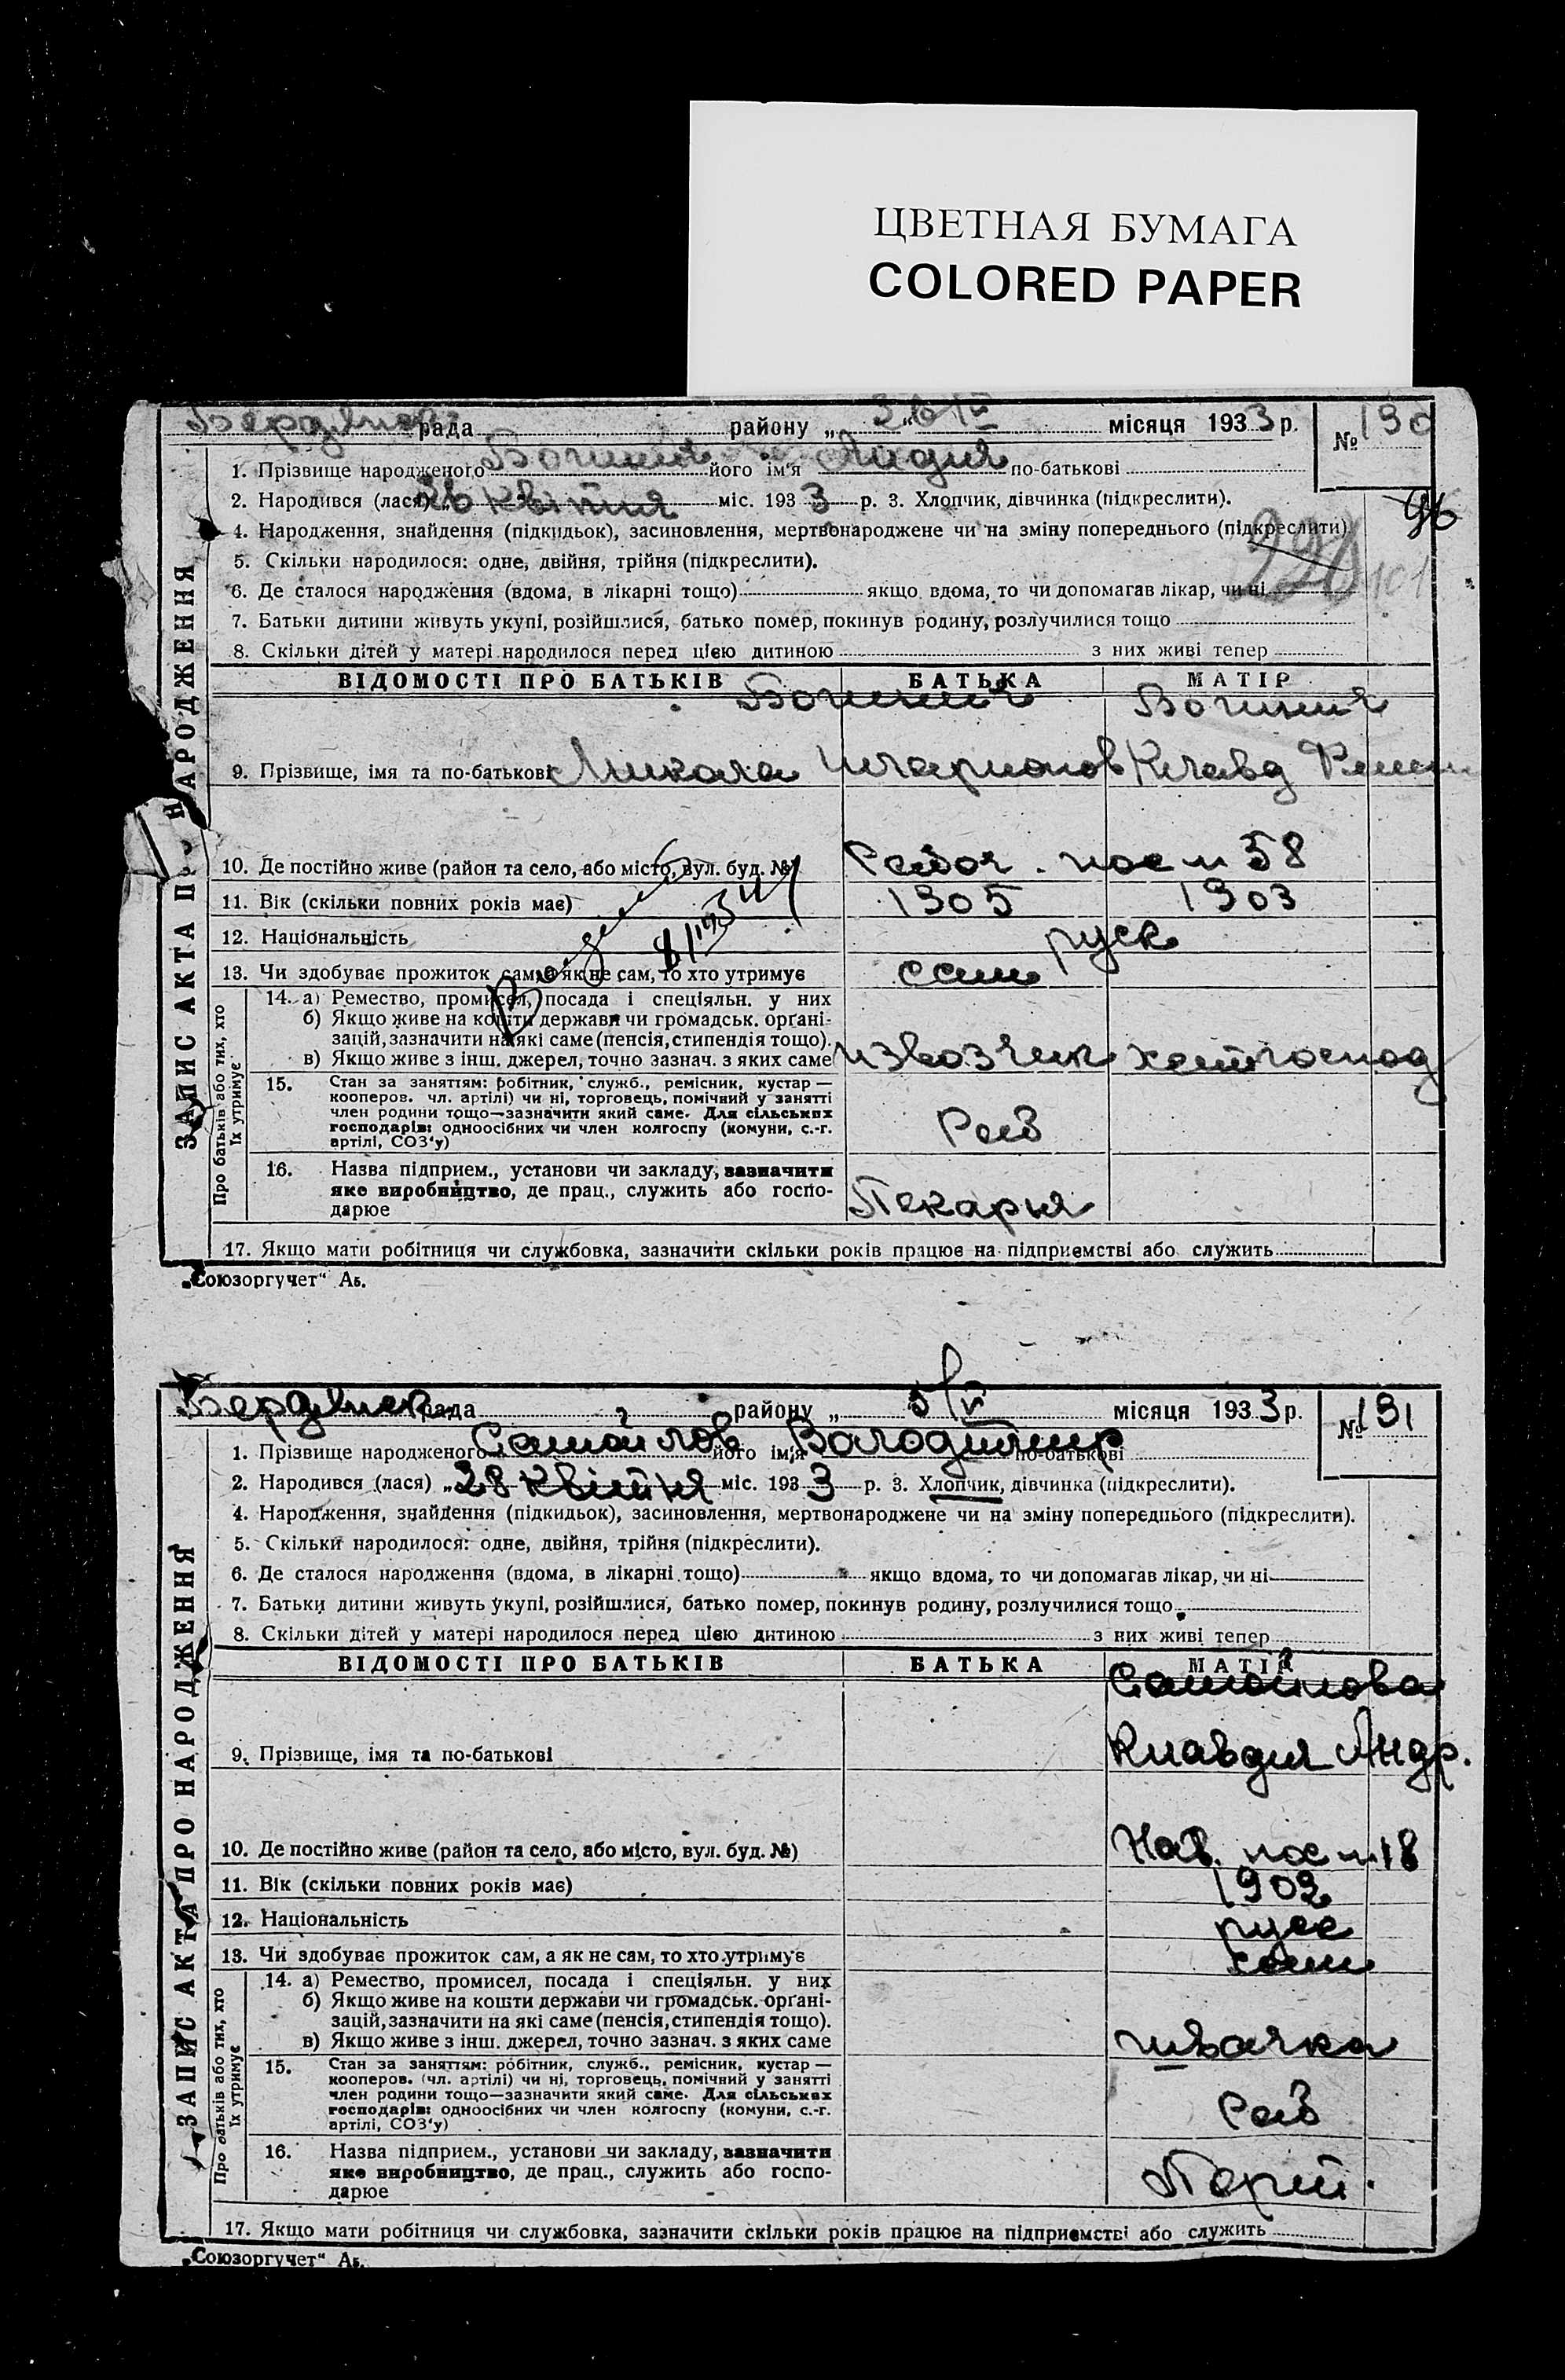 ЦВЕТНАЯ БУМАГА
COLORED PAPER
Бердянск рада района „ “ місяця 1933 р. № 190
1. Прізвище народженого його ім'я по-батькові
2. Народився (лася) квітня міс. 1933 р. 3. Хлопчик, дівчинка (підкреслити).
96
4. Народження, знайдення (підкидьок), засиновлення, мертвонароджене чи на зміну попереднього (підкреслити)
5. Скільки народилося: одне, двійня, трійня (підкреслити).
6. Де сталося народження (вдома, в лікарні тощо) якщо вдома, то чи допомагав лікар, чи ні
101
7. Батьки дитини живуть укупі, розійшлися, батько помер, покинув родину, розлучилися тощо
8. Скільки дітей у матері народилося перед цією дитиною з них живі тепер
ВІДОМОСТІ ПРО БАТЬКІВ БАТЬКА МАТІР
9. Прізвище, імя та по-батькові Микола Иларионов Клавд
10. Де постійно живе (район та село, або місто, вул. буд. №) 58
11. Вік (скільки повних років має) 1905 1903
12. Національність руск
13. Чи здобуває прожиток сам, а як не сам, то хто утримує сам
14. а) Ремество, промисел, посада і спеціяльн. у них
б) Якщо живе на кошти держави чи громадськ. органі-
зацій, зазначити на які саме (пенсія, стипендія тощо).
в) Якщо живе з інш. джерел, точно зазнач. з яких саме извозчик
15. Стан за заняттям: робітник, служб., ремісник, кустар —
кооперов. чл. артілі) чи ні, торговець, помічний у занятті
член родини тощо—зазначити який саме. Для сільських
господарів: одноосібних чи член колгоспу (комуни, с.-г.
артілі, СОЗ'у) Роб
16. Назва підприєм., установи чи закладу, зазначити
яке виробництво, де прац., служить або госпо-
дарює Пекарня
17. Якщо мати робітниця чи службовка, зазначити скільки років працює на підприємстві або служить
ЗАПИС АКТА ПРО НАРОДЖЕННЯ
Про батьків або тих, хто
їх утримує
„Союзоргучет“ Аб.
Бердянск рада району „ 5/V місяця 1933 р. № 191
1. Прізвище народженого Самойлов його ім'я Володимир по-батькові
2. Народився (лася) „28 квітня міс. 1933 р. 3. Хлопчик, дівчинка (підкреслити).
4. Народження, знайдення (підкидьок), засиновлення, мертвонароджене чи на зміну попереднього (підкреслити).
5. Скільки народилося: одне, двійня, трійня (підкреслити).
6. Де сталося народження (вдома, в лікарні тощо) якщо вдома, то чи допомагав лікар, чи ні
7. Батьки дитини живуть укупі, розійшлися, батько помер, покинув родину, розлучилися тощо
8. Скільки дітей у матері народилося перед цією дитиною з них живі тепер
ВІДОМОСТІ ПРО БАТЬКІВ БАТЬКА МАТІР
Самойлова
9. Прізвище, імя та по-батькові Клавдия Андр.
10. Де постійно живе (район та село, або місто, вул. буд. №) 18
11. Вік (скільки повних років має) 1902
12. Національність руск
13. Чи здобуває прожиток сам, а як не сам, то хто утримує сам
14. а) Ремество, промисел, посада і спеціяльн. у них
б) Якщо живе на кошти держави чи громадськ. органі-
зацій, зазначити на які саме (пенсія, стипендія тощо).
в) Якщо живе з інш. джерел, точно зазнач. з яких саме швачка
15. Стан за заняттям: робітник, служб., ремісник, кустар —
кооперов. (чл. артілі) чи ні, торговець, помічний у занятті
член родини тощо—зазначити який саме. Для сільських
господарів: одноосібних чи член колгоспу (комуни, с.-г.
артілі, СОЗ'у) Роб
16. Назва підприєм., установи чи закладу, зазначити
яке виробництво, де прац., служить або госпо-
дарює
17. Якщо мати робітниця чи службовка, зазначити скільки років працює на підприємстві або служить
ЗАПИС АКТА ПРО НАРОДЖЕННЯ
Про батьків або тих, хто
їх утримує
„Союзоргучет“ Аб.